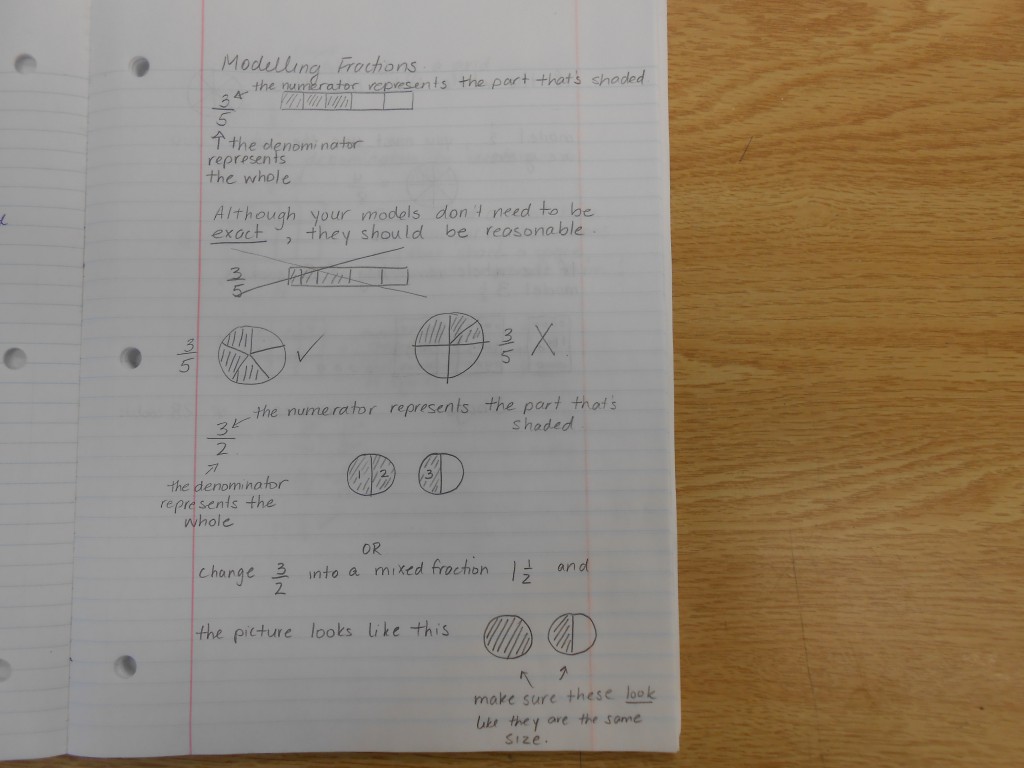 Modelling Fractions
the numerator represents the part that's shaded
3
5
the denominator
represents
the whole
Although your models don't need to be
exact, they should be reasonable.
3
5
3
5
3
5
X
the numerator represents the part that's
shaded
3
2
the denominator
represents the
whole
1 2 3
OR
change 3/2 into a mixed fraction 1 1/2 and
the picture looks like this
make sure these look
like they are the same
size.